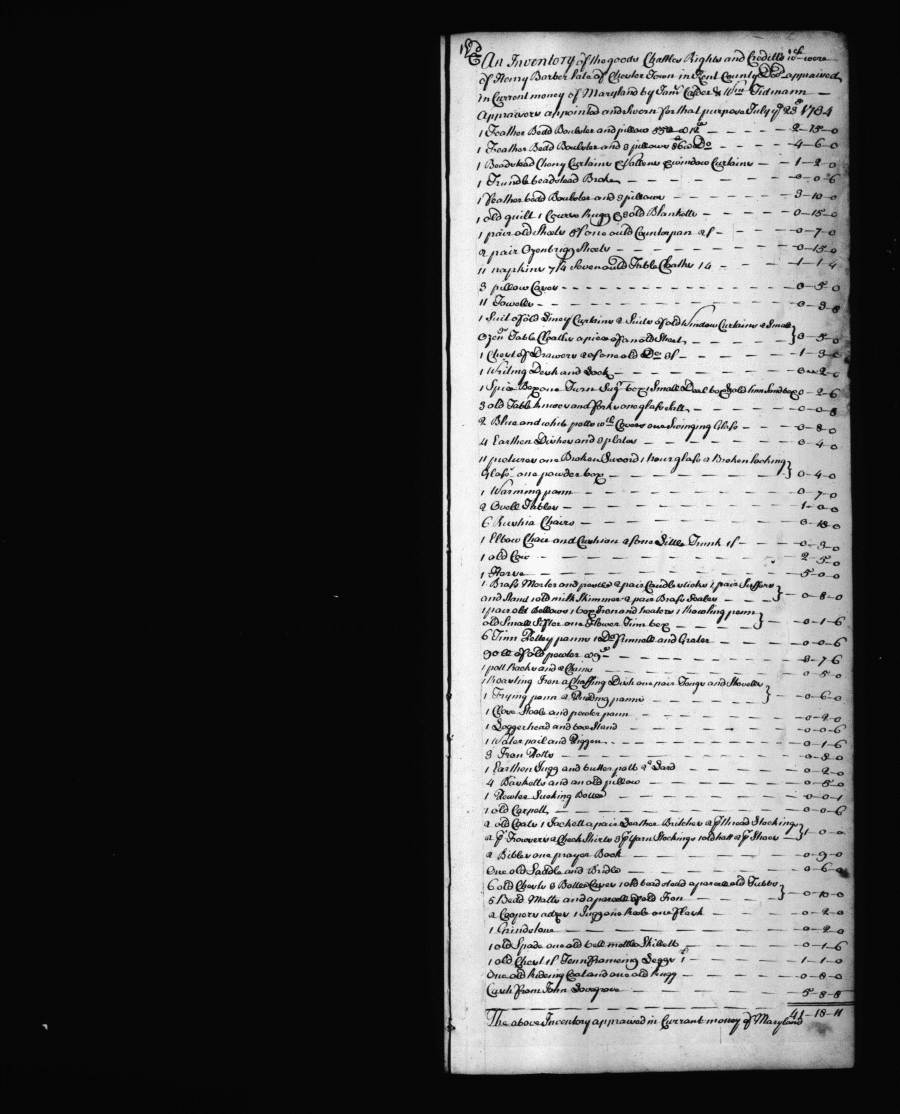 An Inventory of the goods Chattles Rights and Creditts wch were
of Henry Barber late of Chester Town in Kent County Decd appraised
in Current money of Maryland by Jams Calder & Wm Tidmann
Appraisers appointed and Sworn for that purpose July ye 23d 1734
1 Feather Bedd Boulster and pillow 2-15-0
1 Feather Bedd Boulster and 2 pillows Do 4-6-0
1 Beadstead Cheny Curtains & Vallens & window Curtains 1-2-0
1 Trundle beadstead Broke 0-0-6
1 Feather bedd Boulster and 2 pillows 3-10-0
1 old quilt 1 Course Rugg & old Blanketts 0-15-0
1 pair old Sheets & one ould Counterpan 0-7-0
2 pair Ozenbrigg Sheets 0-15-0
11 napkins 7/4 Seven ould Table Cloaths 14 1-1-4
3 pillow Cases 0-5-0
11 Towells 0-3-8
1 Suit of old Curtains 2 Suits of old Window Curtains 2 Small
Ozenr Table Cloaths a piece of an old Sheet 0-5-0
1 Chest of Drawers & one old Do 1-3-0
1 Writing Desk and
1 Spice Box one Sugr box 1 Small Deal box 0-2-6
3 old Table knives and forks one glass Salt 0-0-8
2 Blue and white potts wth Covers one Swinging Glass 0-8-0
4 Earthen Dishes and 2 plates 0-4-0
11 pictures one Broken Sword 1 hour glass a Broken looking
Glass one powder box 0-4-0
1 Warming pann 0-7-0
2 Ovell Tables 1-0-0
6 Rushia Chairs 0-18-0
1 Elbow Chair and Cushion & one Little Trunk 0-3-0
1 old Cow 2-5-0
1 Horse 5-0-0
1 Brass Morter and pestle 2 pair Candlesticks 1 pair Snuffers
and Stand 1 old milk Skimmer 2 pair Brass Scales 0-8-0
1 pair old Bellows 1 box Iron and heaters 1 pann
old Small Sifter one Flower Tinn box 0-1-6
6 Tinn Petty panns 1 Do Funnell and Grater 0-0-6
of old pewter 0-7-6
1 pott Racks and 2 Chains 0-5-0
1 Roasting Iron a Chaffing Dish one pair Tongs and Shovells
1 Frying pann 2 Pudding panns 0-6-0
1 Close Stoole and pewter pann 0-2-0
1 Loggerhead and Stand 0-0-6
1 Water pail and Piggen 0-1-6
3 Iron Potts
1 Earthen Jugg and butter pott 0-2-0
4 Basketts and an old pillow 0-5-0
1 Pewter Sucking Bottle 0-0-1
1 old Carpett 0-0-6
2 old Coats 1 Jackett a pair Leather Britches 2 pr thread Stockings
2 pr Trowsers 2 Check Shirts 3 pr Yarn Stockings 1 old hatt 2 pr Shoes 1-0-0
2 Bibles one prayer Book 0-9-0
One old Saddle and Bridle 0-6-0
6 old Chests 3 Bottle Cases 1 old bead stead a parcell old Tubbs
5 Bead Matts and a parcell of old Iron 0-10-0
2 Coopers adzes 1 Jugg one one Flesk 0-2-0
1 Grindstone 0-2-0
1 old Spade one old bell mettle Skillett 0-1-6
1 old Chest 1-1-0
One old Rideing Coat and one old Rugg 0-8-0
Cash from John Lovegrove 5-8-8
41-18-11
The above Inventory appraised in Currant money of Maryland